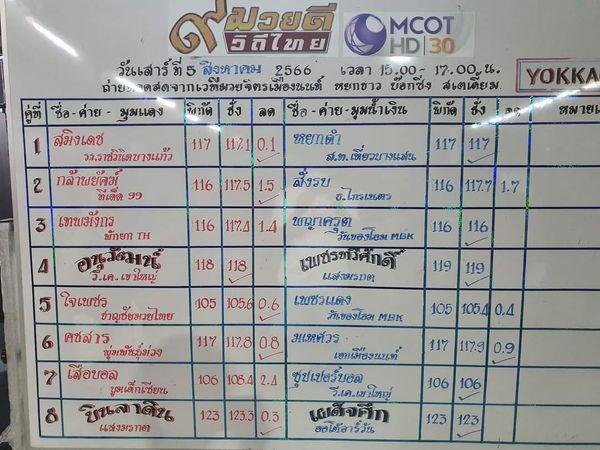 ๙ มวยดี
วิถีไทย
MCOT
HD 30
วันเสาร์ ที่ 5 สิงหาคม 2566 เวลา 15.00 - 17.00 น.
ถ่ายทอดสดจากเวทีมวยจิตรเมืองนนท์ หยกขาว บ๊อกซิ่ง สเตเดี้ยม
YOKKA
คู่ที่ ชื่อ - ค่าย - มุมแดง พิกัด ชั่ง ลด ชื่อ - ค่าย - มุมน้ำเงิน พิกัด ชั่ง ลด หมายเ
1 สมิงเดช 117 117.1 0.1 หยกดำ 117 117
รร.ราชวินิตบางแก้ว ส.ท.เที่ยวบางแสน
2 กล้าพยัคฆ์ 116 117.5 1.5 สั่งรบ 116 117.7 1.7
ทีเด็ด 99 ช.ไกรเนตร
3 เทพมังกร 116 117.4 1.4 พญาครุฑ 116 116
พักยก TH วันของโอม MBK
4 อนุวัฒน์ 118 118 เพชรทวีศักดิ์ 119 119
วี.เค.เขาใหญ่ แสงมรกต
5 ใจเพชร 105 105.6 0.6 เพชรแดง 105 105.4 0.4
ชาญชัยมวยไทย วันของโอม MBK
6 คชสาร 117 117.8 0.8 มเหศวร 117 117.9 0.9
พุ่มพันธุ์ม่วง เอกเมืองนนท์
7 เสือบอล 106 108.4 2.4 ซุปเปอร์บอล 106 106
บูมเด็กเซียน วี.เค.เขาใหญ่
8 บินลาดิน 123 123.3 0.3 เผด็จศึก 123 123
แสงมรกต ออโต้อาร์วัน